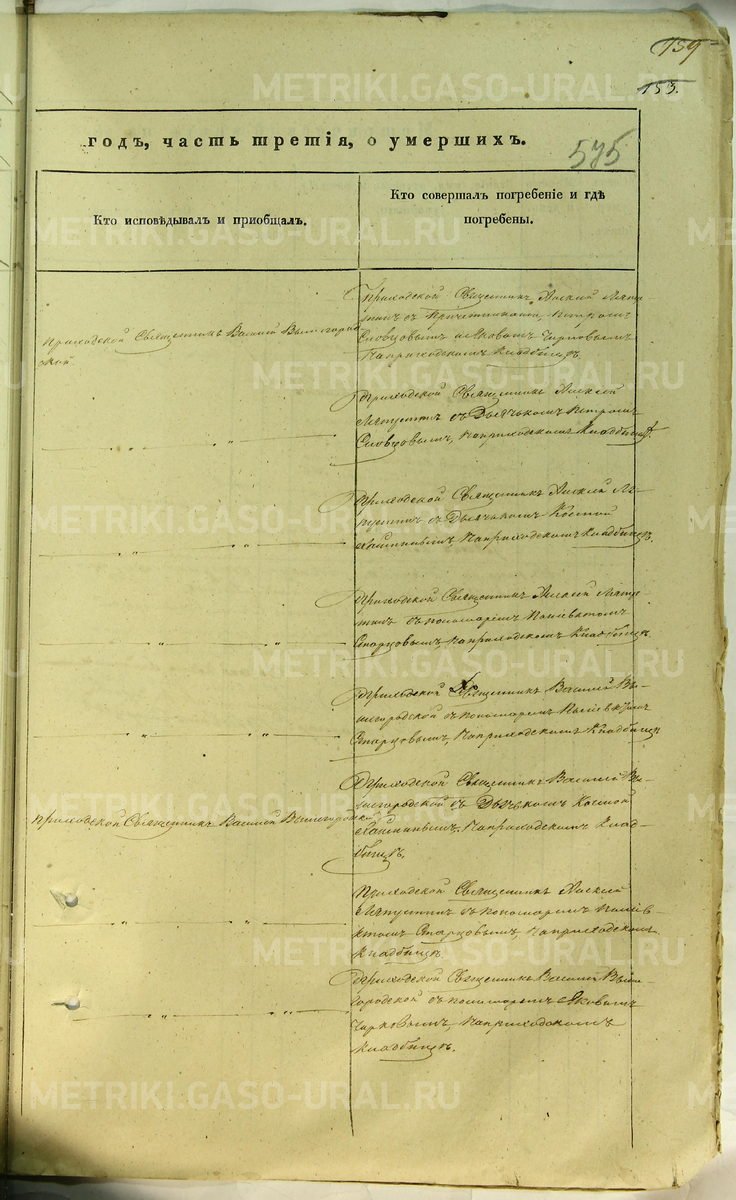 159
153.
575
годъ, часть третія, о умершихъ.
Кто исповѣдывалъ и приобщалъ.
Кто совершалъ погребеніе и гдѣ
погребены.
Приходской Священникъ Василій Вышегород-
ской
Приходской Священникъ Алексѣй Ляпу-
стинъ съ Причетниками, Петромъ
Словцовымъ и Яковомъ
На приходскомъ Кладбищѣ.
Приходской Священникъ Алексѣй
Ляпустинъ съ Дьячькомъ Петромъ
Словцовымъ, На приходскомъ Кладбищѣ.
Приходской Священникъ Алексѣй Ля-
пустинъ съ Дьячькомъ Космой
На приходскомъ Кладбищѣ.
Приходской Священникъ Алексѣй Ляпу-
стинъ съ пономаремъ
Старцовымъ, На приходскомъ Кладбищѣ.
Приходской Священникъ Василій Вы-
шегородской съ пономаремъ
Старцовымъ, На приходскомъ Кладбищѣ
Приходской Священникъ Василій Вышегородской
Приходской Священникъ Василій Вы-
шегородской съ Дьячькомъ Космой
На приходскомъ Клад-
бищѣ.
Приходской Священникъ Алексѣй
Ляпустинъ съ пономаремъ
Старцовымъ, На приходскомъ
Кладбищѣ.
Приходской Священникъ Василій Выше-
городской съ пономаремъ Яковомъ
На приходскомъ
Кладбищѣ.
METRIKI.GASO-URAL.RU